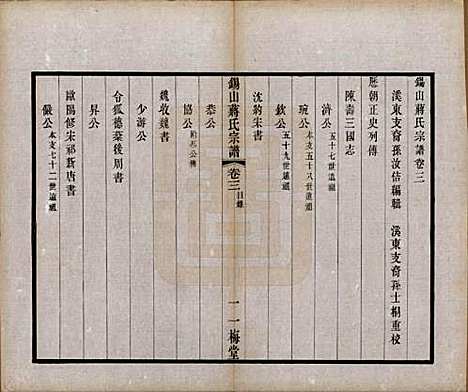 錫山蔣氏宗譜卷三
溪東支裔孫汝佶編輯　溪東支裔孫士桐重校
歷朝正史列傳
陳壽三國志
濟公 五十七世遠祖
琬公 本支五十八世遠祖
欽公 五十九世遠祖
沈約宋書
恭公
錫山蔣氏宗譜 卷三 目錄 一 一梅堂
協公 附恭公傳
魏收魏書
少游公
令狐德棻後周書
昇公
歐陽修宋祁新唐書
儼公 本支七十二世遠祖